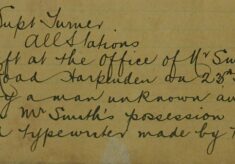 Supt Turner
All Stations
oft at the office of Mr Sm
oad Harpenden on 23rd
y a man unknown an
Mr Smith's possession
typewriter made by